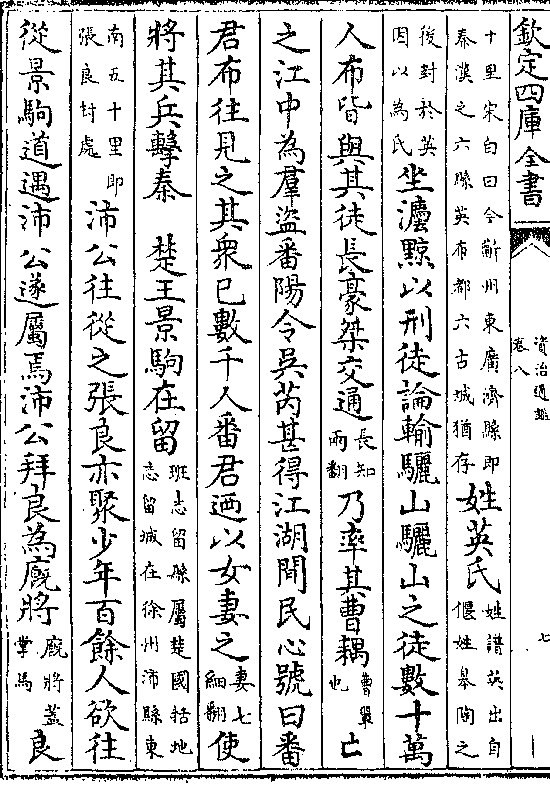 欽定四庫全書
資治通鑑
卷八
七
十里宋白曰今蘄州東廣濟縣即
秦漢之六縣英布都六古城猶存
姓英氏
姓譜英出自
偃姓臯陶之
後封於英
因以為氏
坐灋黥以刑徒論輸驪山驪山之徒數十萬
人布皆與其徒長豪桀交通
長知
兩翻
乃率其曹耦
曹輩
也
亡
之江中為羣盜番陽令吳芮甚得江湖間民心號曰番
君布往見之其衆已數千人番君廼以女妻之
妻七
細翻
使
將其兵擊秦
楚王景駒在留
班志留縣屬楚國括地
志留城在徐州沛縣東
南五十里即
張良封處
沛公往從之張良亦聚少年百餘人欲往
從景駒道遇沛公遂屬焉沛公拜良為廐將
廐將蓋
掌馬
良